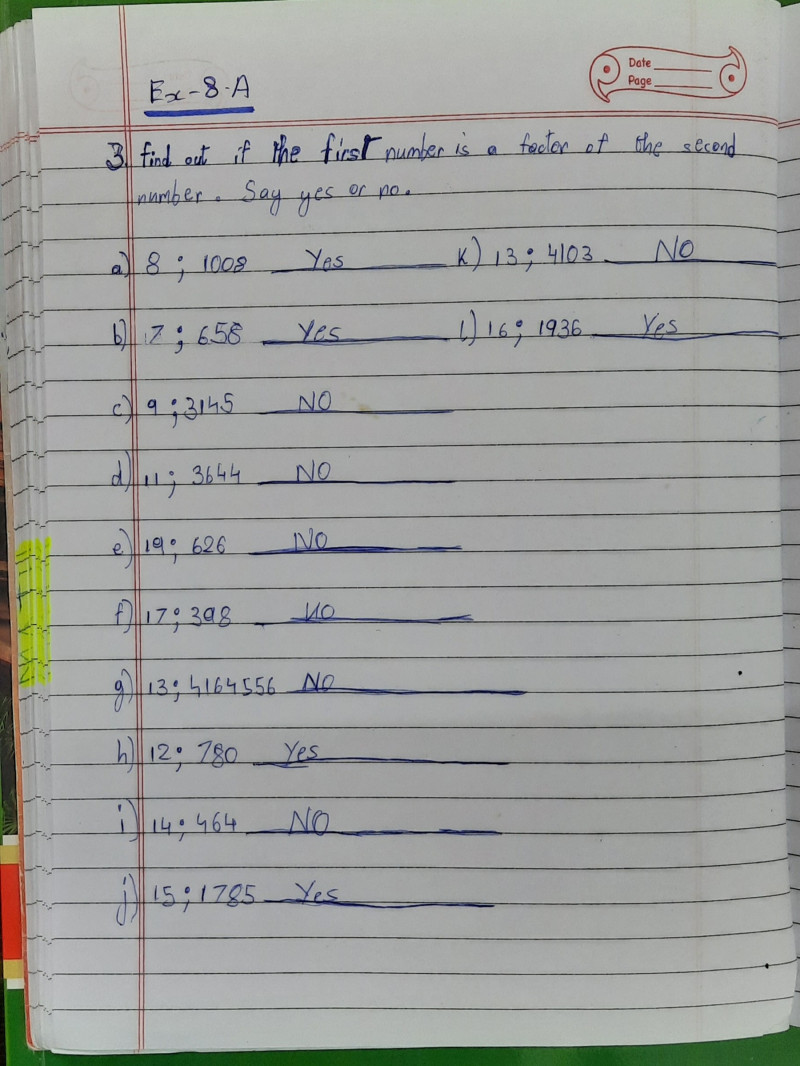 Date
Page
Ex-8.A
3. find out if the first number is a factor of the second
number. Say yes or no.
a) 8 ; 1008 Yes
k) 13 ; 4103 NO
b) 7 ; 658 Yes
l) 16 ; 1936 Yes
c) 9 ; 3145 NO
d) 11 ; 3644 NO
e) 19 ; 626 NO
f) 17 ; 398 NO
g) 13 ; 4164556 NO
h) 12 ; 780 Yes
i) 14 ; 464 NO
j) 15 ; 1785 Yes